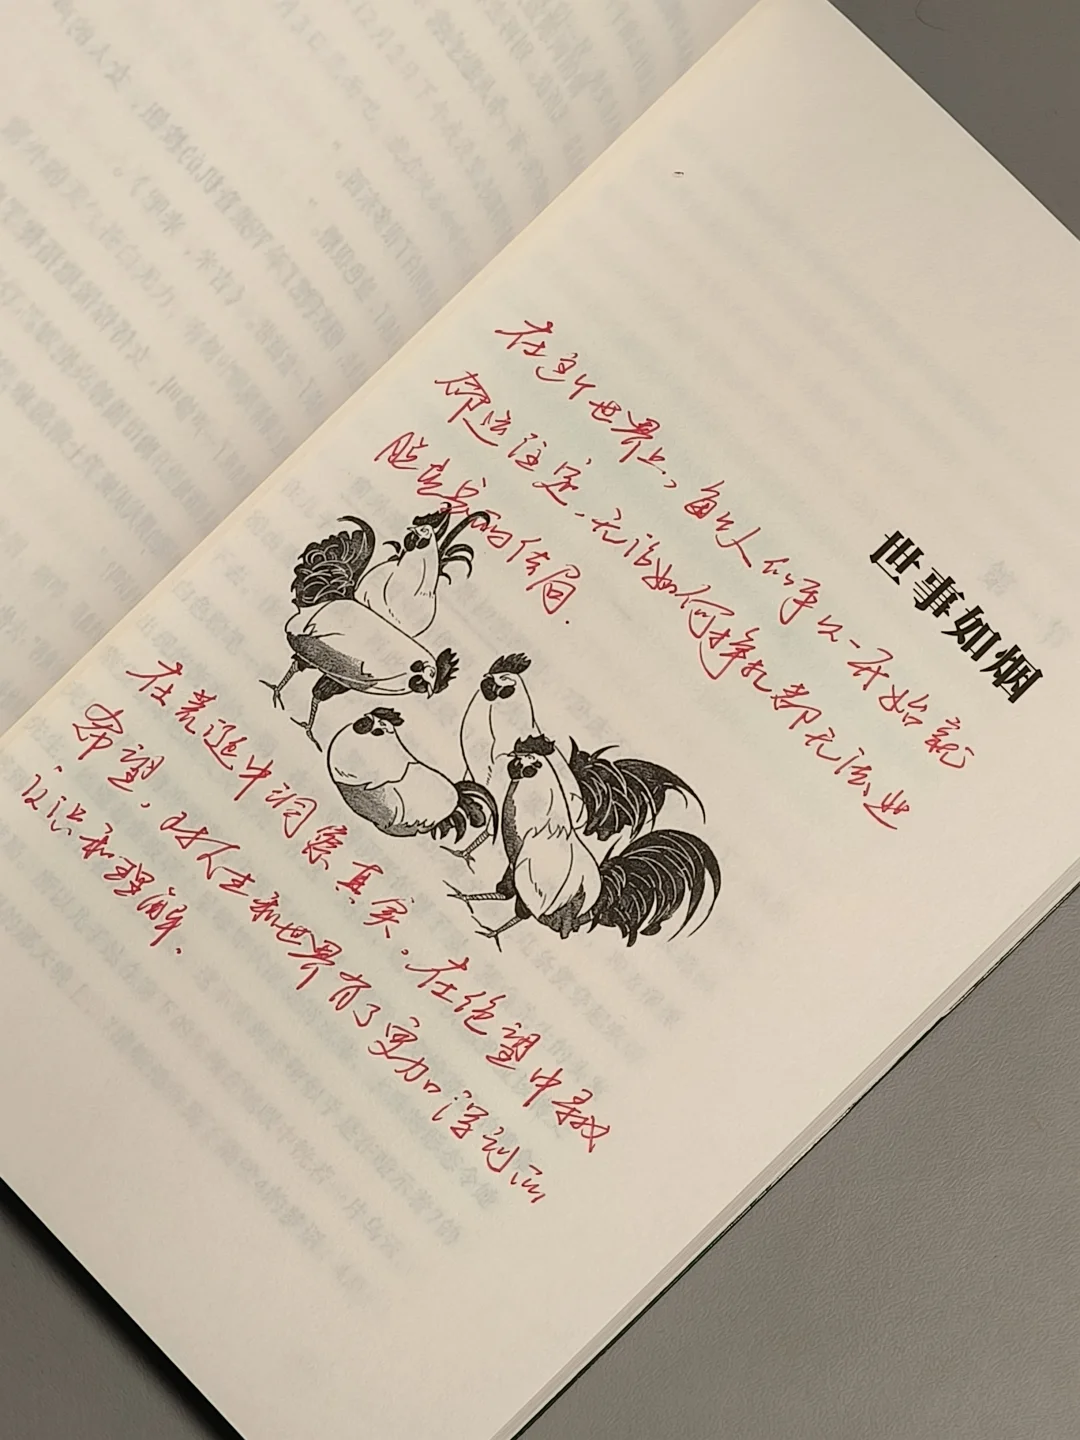 世事如烟
在这个世界上，每个人似乎从一开始就
命运注定，无论如何挣扎都无法
的结局.
在荒诞中洞察真实，在绝望中寻找
希望，对人生和世界有了更加深刻的
认识和理解.